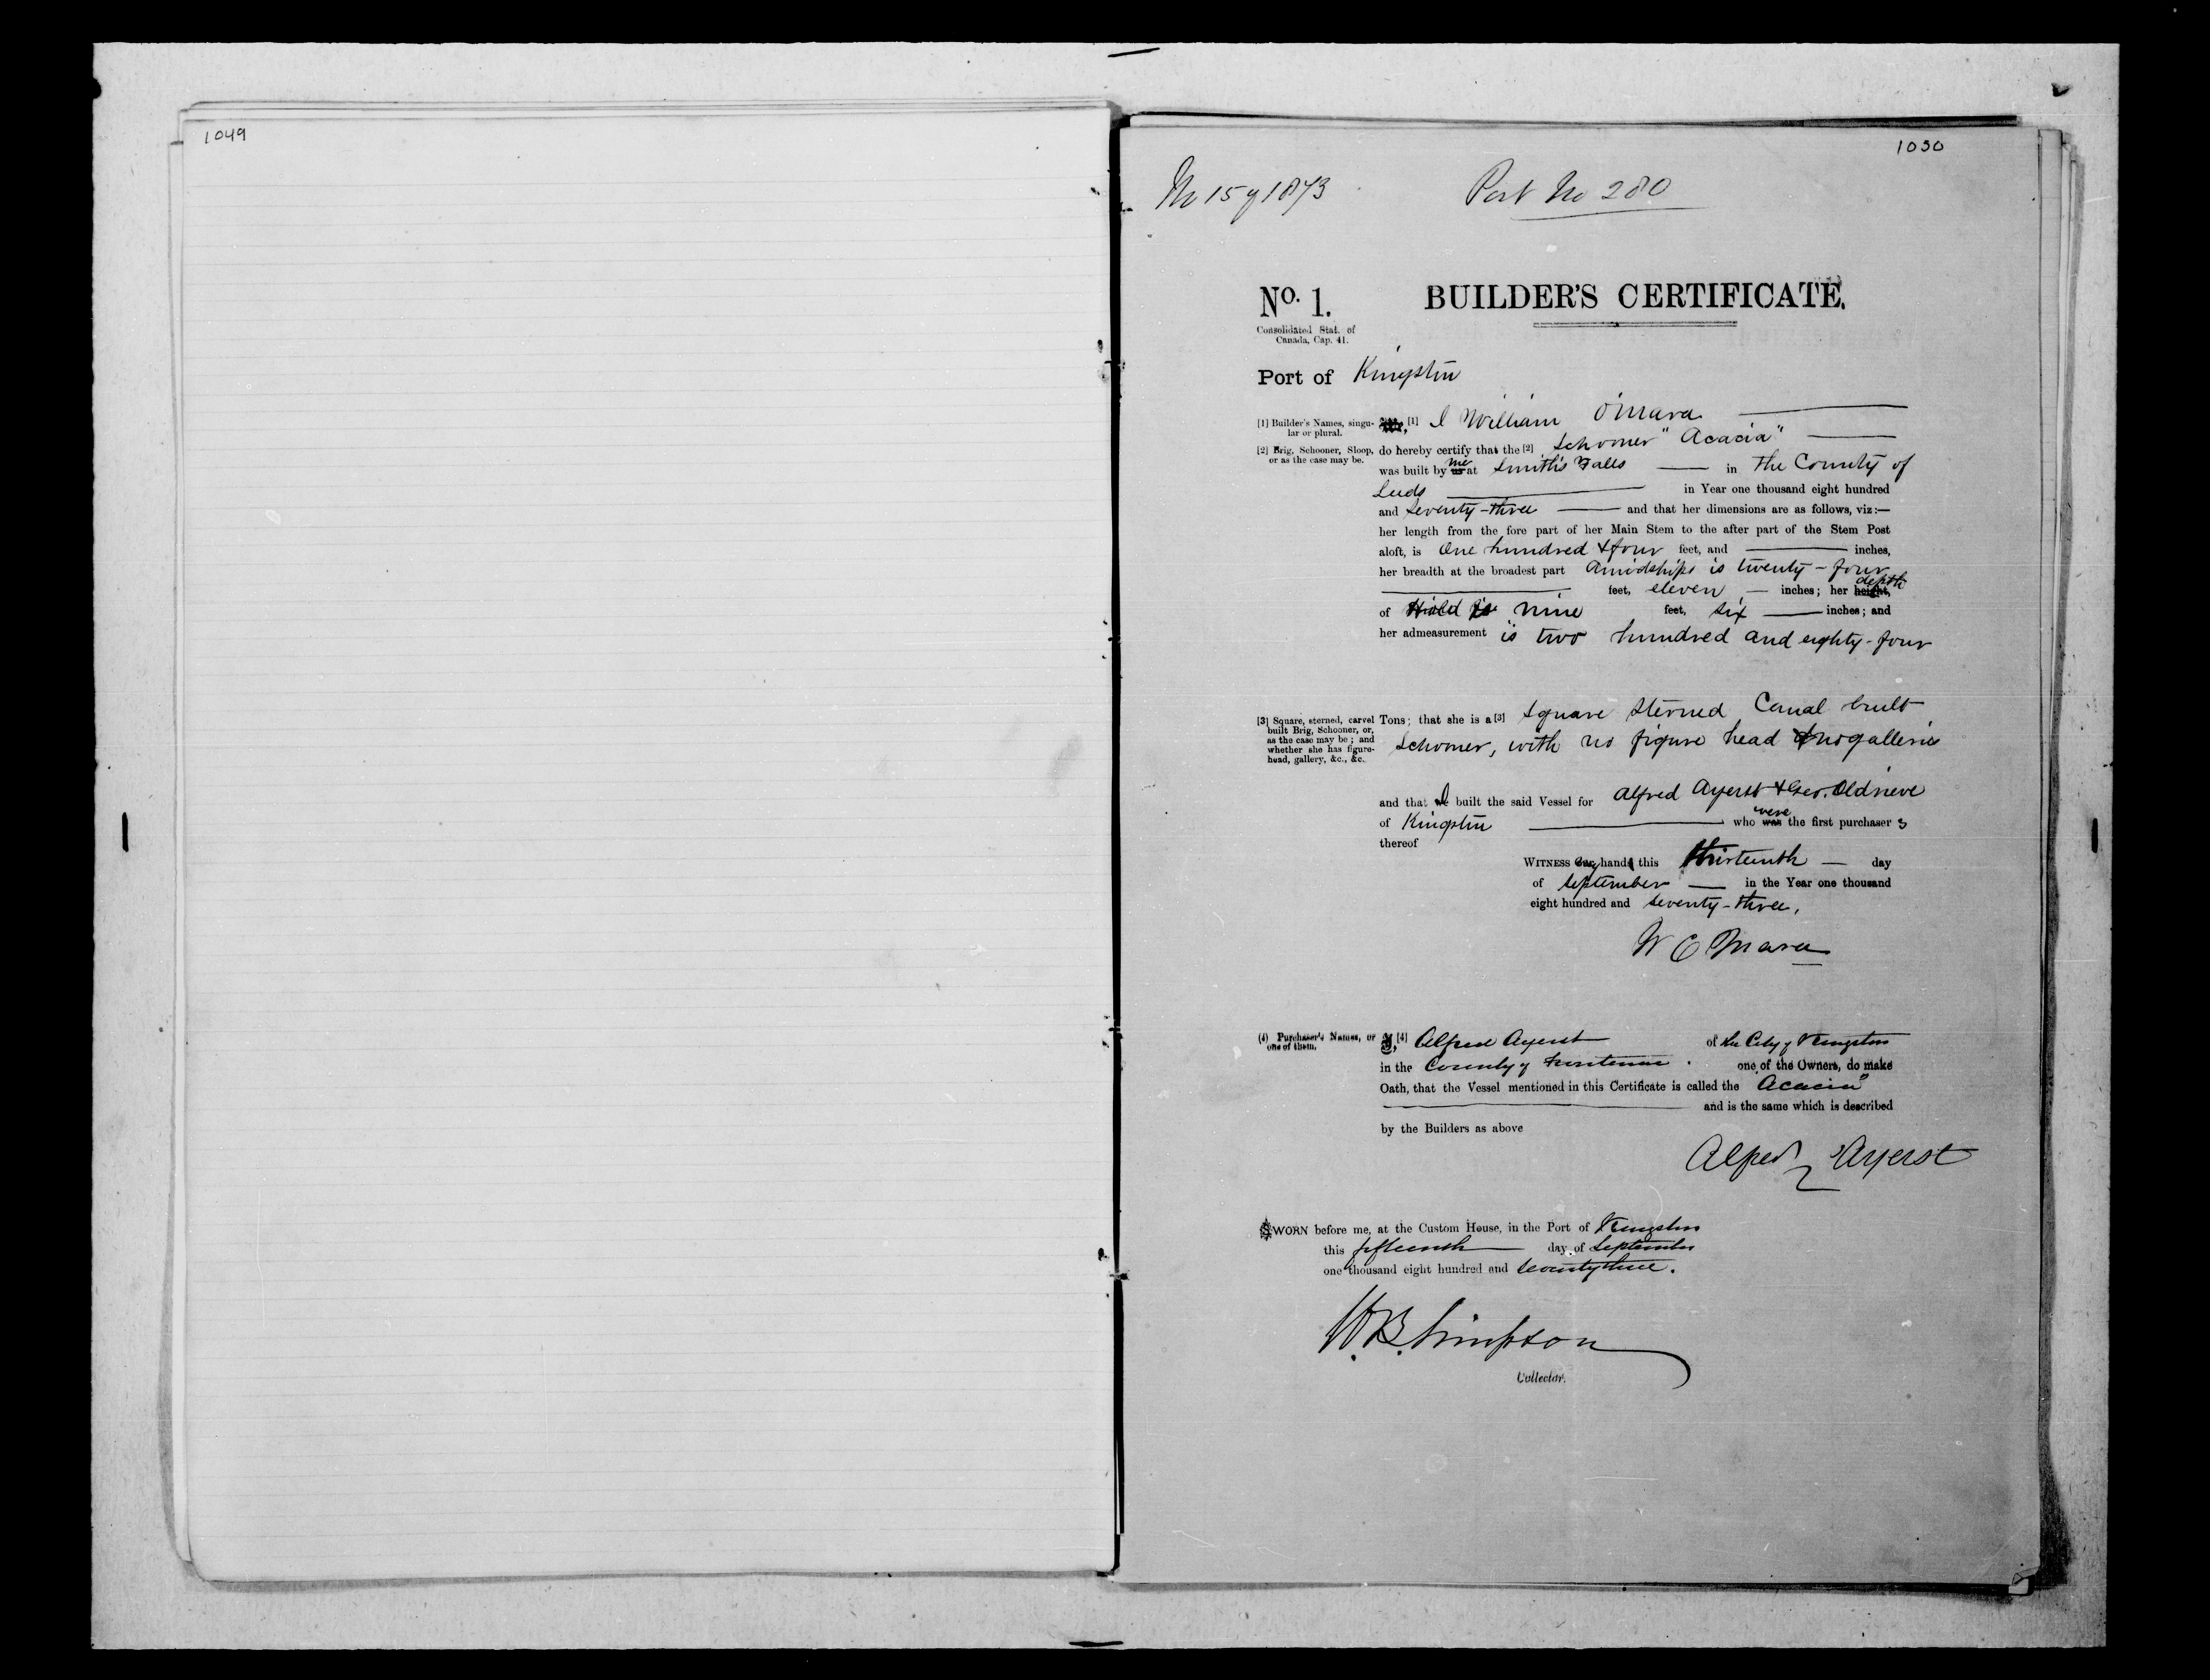 1049
1050
No 15 of 1873
Port No 280
No. 1.
BUILDER'S CERTIFICATE.
Consolidated Stat. of
Canada, Cap. 41.
Port of Kingston
[1] Builder's Names, singular or plural.
[1] I William O'Mara
[2] Brig, Schooner, Sloop, or as the case may be.
do hereby certify that the [2] Schooner "Acacia"
was built by us me at Smith's Falls in the County of
Leeds in Year one thousand eight hundred
and Seventy-three and that her dimensions are as follows, viz:—
her length from the fore part of her Main Stem to the after part of the Stem Post
aloft, is One hundred & four feet, and inches,
her breadth at the broadest part Amidships is twenty-four
feet, eleven inches; her height, depth
of Hold is nine feet, six inches; and
her admeasurement is two hundred and eighty-four
[3] Square, sterned, carvel
built Brig, Schooner, or,
as the case may be; and
whether she has figure-
head, gallery, &c., &c.
Tons; that she is a [3] Square Sterned Canal built
Schooner, with no figure head & no galleries
and that we I built the said Vessel for Alfred Ayerst & Geo. Oldrieve
of Kingston who was were the first purchasers
thereof
WITNESS my hand this thirteenth day
of September in the Year one thousand
eight hundred and Seventy-three.
W O Mara
(4) Purchaser's Names, or
one of them.
I, [4] Alfred Ayerst of the City of Kingston
in the County of Frontenac one of the Owners, do make
Oath, that the Vessel mentioned in this Certificate is called the "Acacia"
and is the same which is described
by the Builders as above
Alfred Ayerst
SWORN before me, at the Custom House, in the Port of Kingston
this fifteenth day of September
one thousand eight hundred and Seventy three.
W. B. Simpson
Collector.